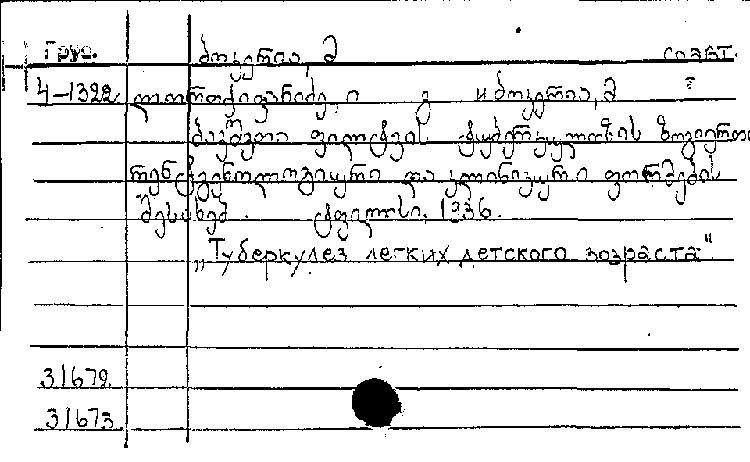 Груз. ბოკერია, მ соавт.
4-1322 ლორთქიფანიძე, ი и ბოკერია, მ
ბავშვთა ფილტვის ტუბერკულოზის ზოგიერთი
რენტგენოლოგიური და კლინიკური ფორმების
შესახებ. ტფილისი, 1936.
„Туберкулез легких детского возраста"
31672.
31673.